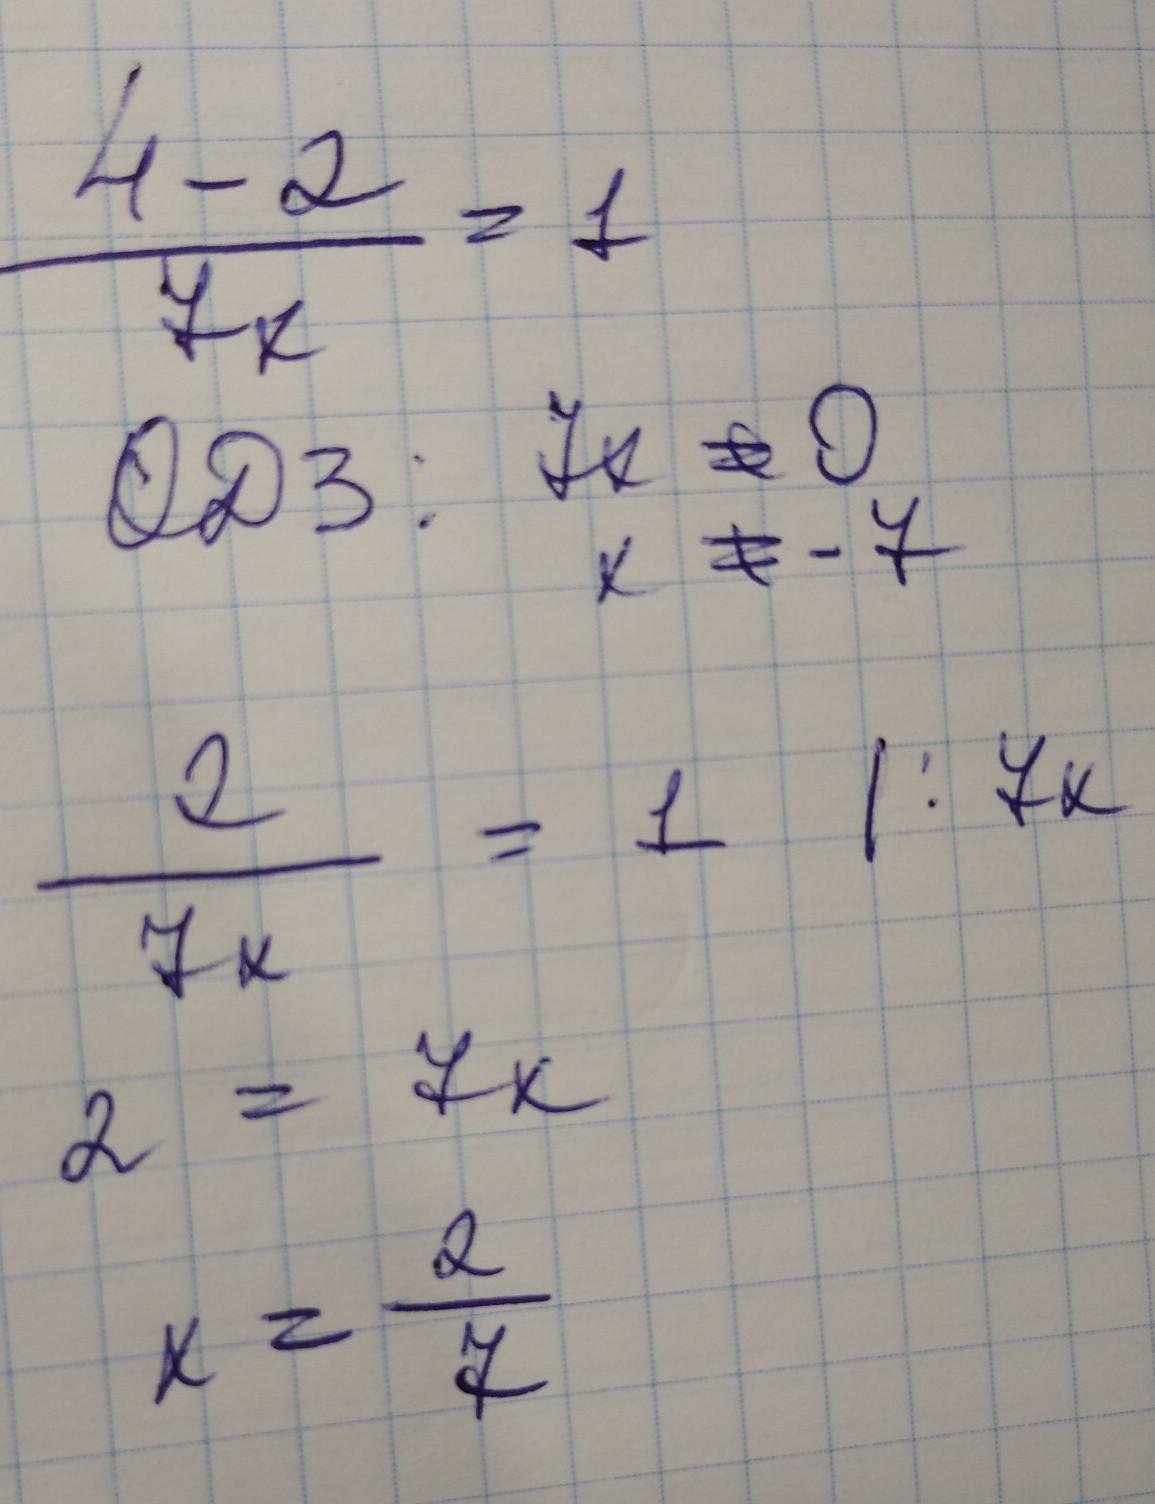 4-2/7x = 1
ОДЗ: 7x ≠ 0
x ≠ -7
2/7x = 1 |: 7x
2 = 7x
x = 2/7